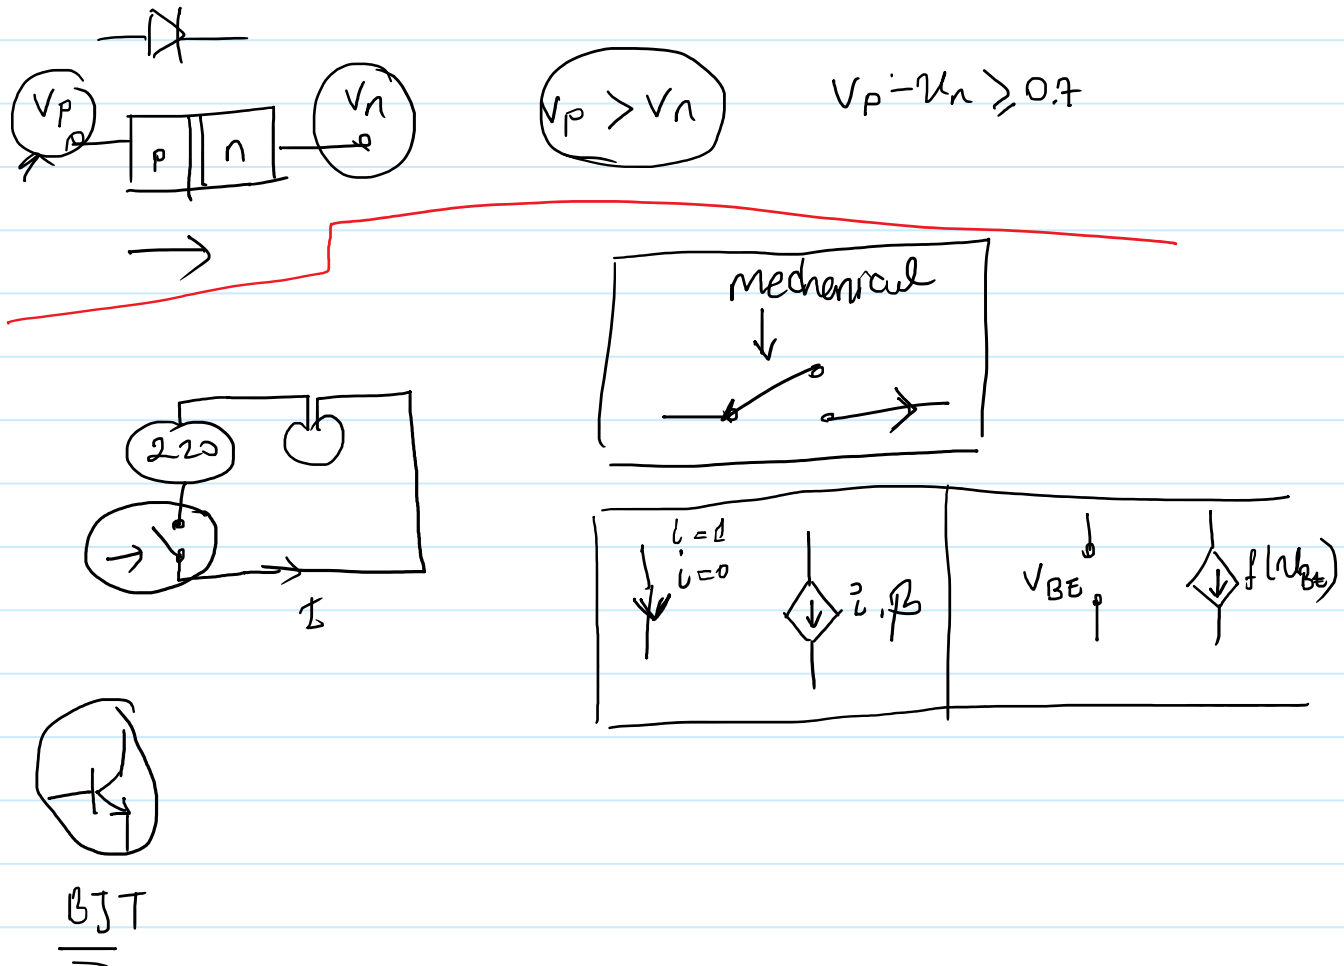 Vp
Vn
Vp > Vn
Vp - Vn ⩾ 0.7
p
n
mechenical
220
I
i = 1
i = 0
i . β
VBE
f(VBE)
BJT